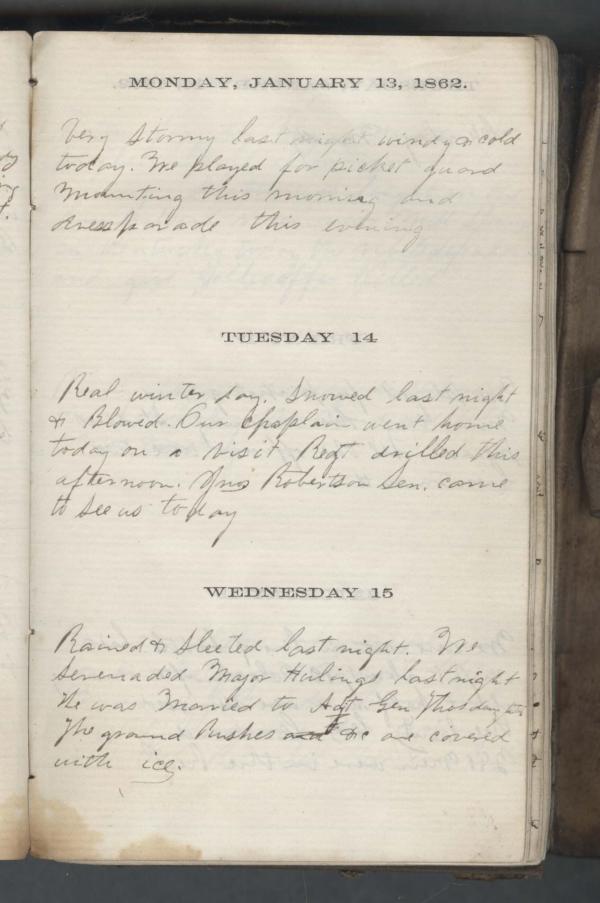 MONDAY, JANUARY 13, 1862.
Very Stormy last night windy & cold
today. We played for picket guard
Mounting this morning and
dressparade this evening
TUESDAY 14
Real winter day. Snowed last night
& Blowed. Our Chaplain went home
today on a visit Regt drilled this
afternoon. Robertson Sen. came
to see us today
WEDNESDAY 15
Rained & Sleeted last night. We
serenaded Major Hulings last night
He was Married to Adjt Gen Thos daughter
The ground Bushes &c are covered
with ice.